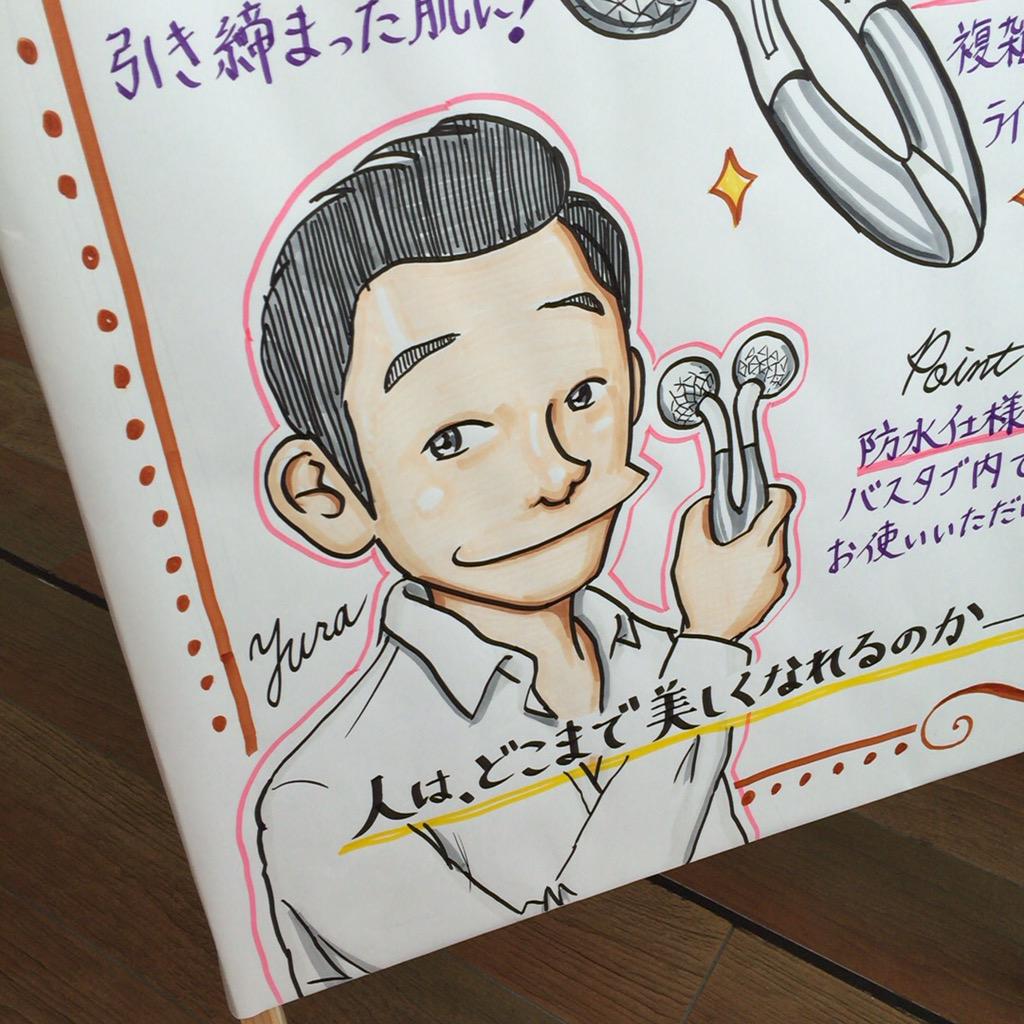 引き締まった肌に!
複雑
ライ
Point
防水仕様
バスタブ内で
お使いいただけ
Yura
人は、どこまで美しくなれるのか―